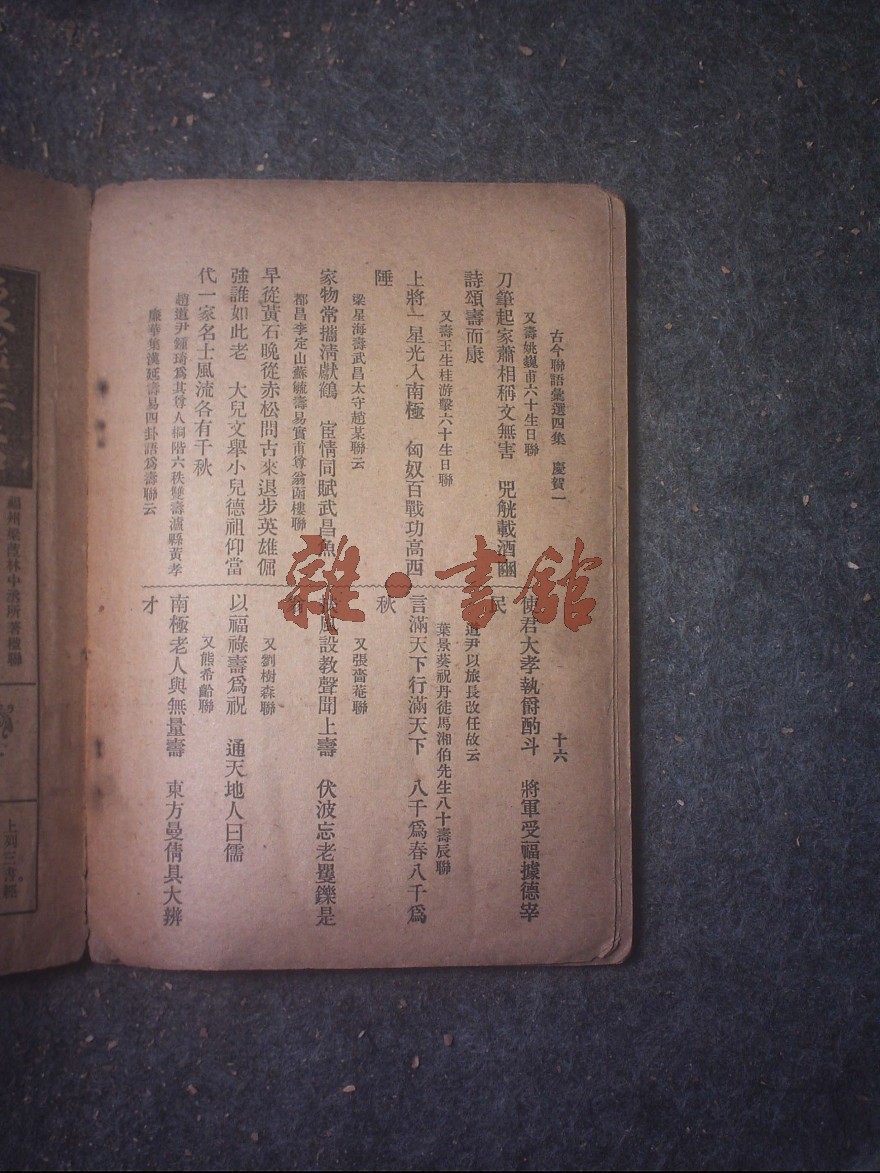 古今聯語彙選四集　慶賀一　十六
又壽姚巍甫六十生日聯
刀筆起家蕭相稱文無害　兕觥載酒豳
詩頌壽而康
又壽王生桂游擊六十生日聯
上將一星光入南極　匈奴百戰功高西
陲
梁星海壽武昌太守趙某聯云
家物常攜淸獻鶴　宦情同賦武昌魚
都昌李定山蘇毓壽易實甫尊翁函樓聯
早從黃石晚從赤松問古來退步英雄倔
強誰如此老　大兒文舉小兒德祖仰當
代一家名士風流各有千秋
趙道尹鍾琦爲其尊人桐階六秩雙壽瀘縣黃孝
廉華集漢延壽易四卦語爲壽聯云
使君大孝執爵酌斗　將軍受福據德宰
民
道尹以旅長改任故云
葉景葵祝丹徒馬湘伯先生八十壽辰聯
言滿天下行滿天下　八千爲春八千爲
秋
又張嗇菴聯
風設教聲聞上壽　伏波忘老矍鑠是
又劉樹森聯
以福祿壽爲祝　通天地人曰儒
又熊希齡聯
南極老人與無量壽　東方曼倩具大辨
才
福州梁茝林中丞所著楹聯
上列三書經
雜·書館